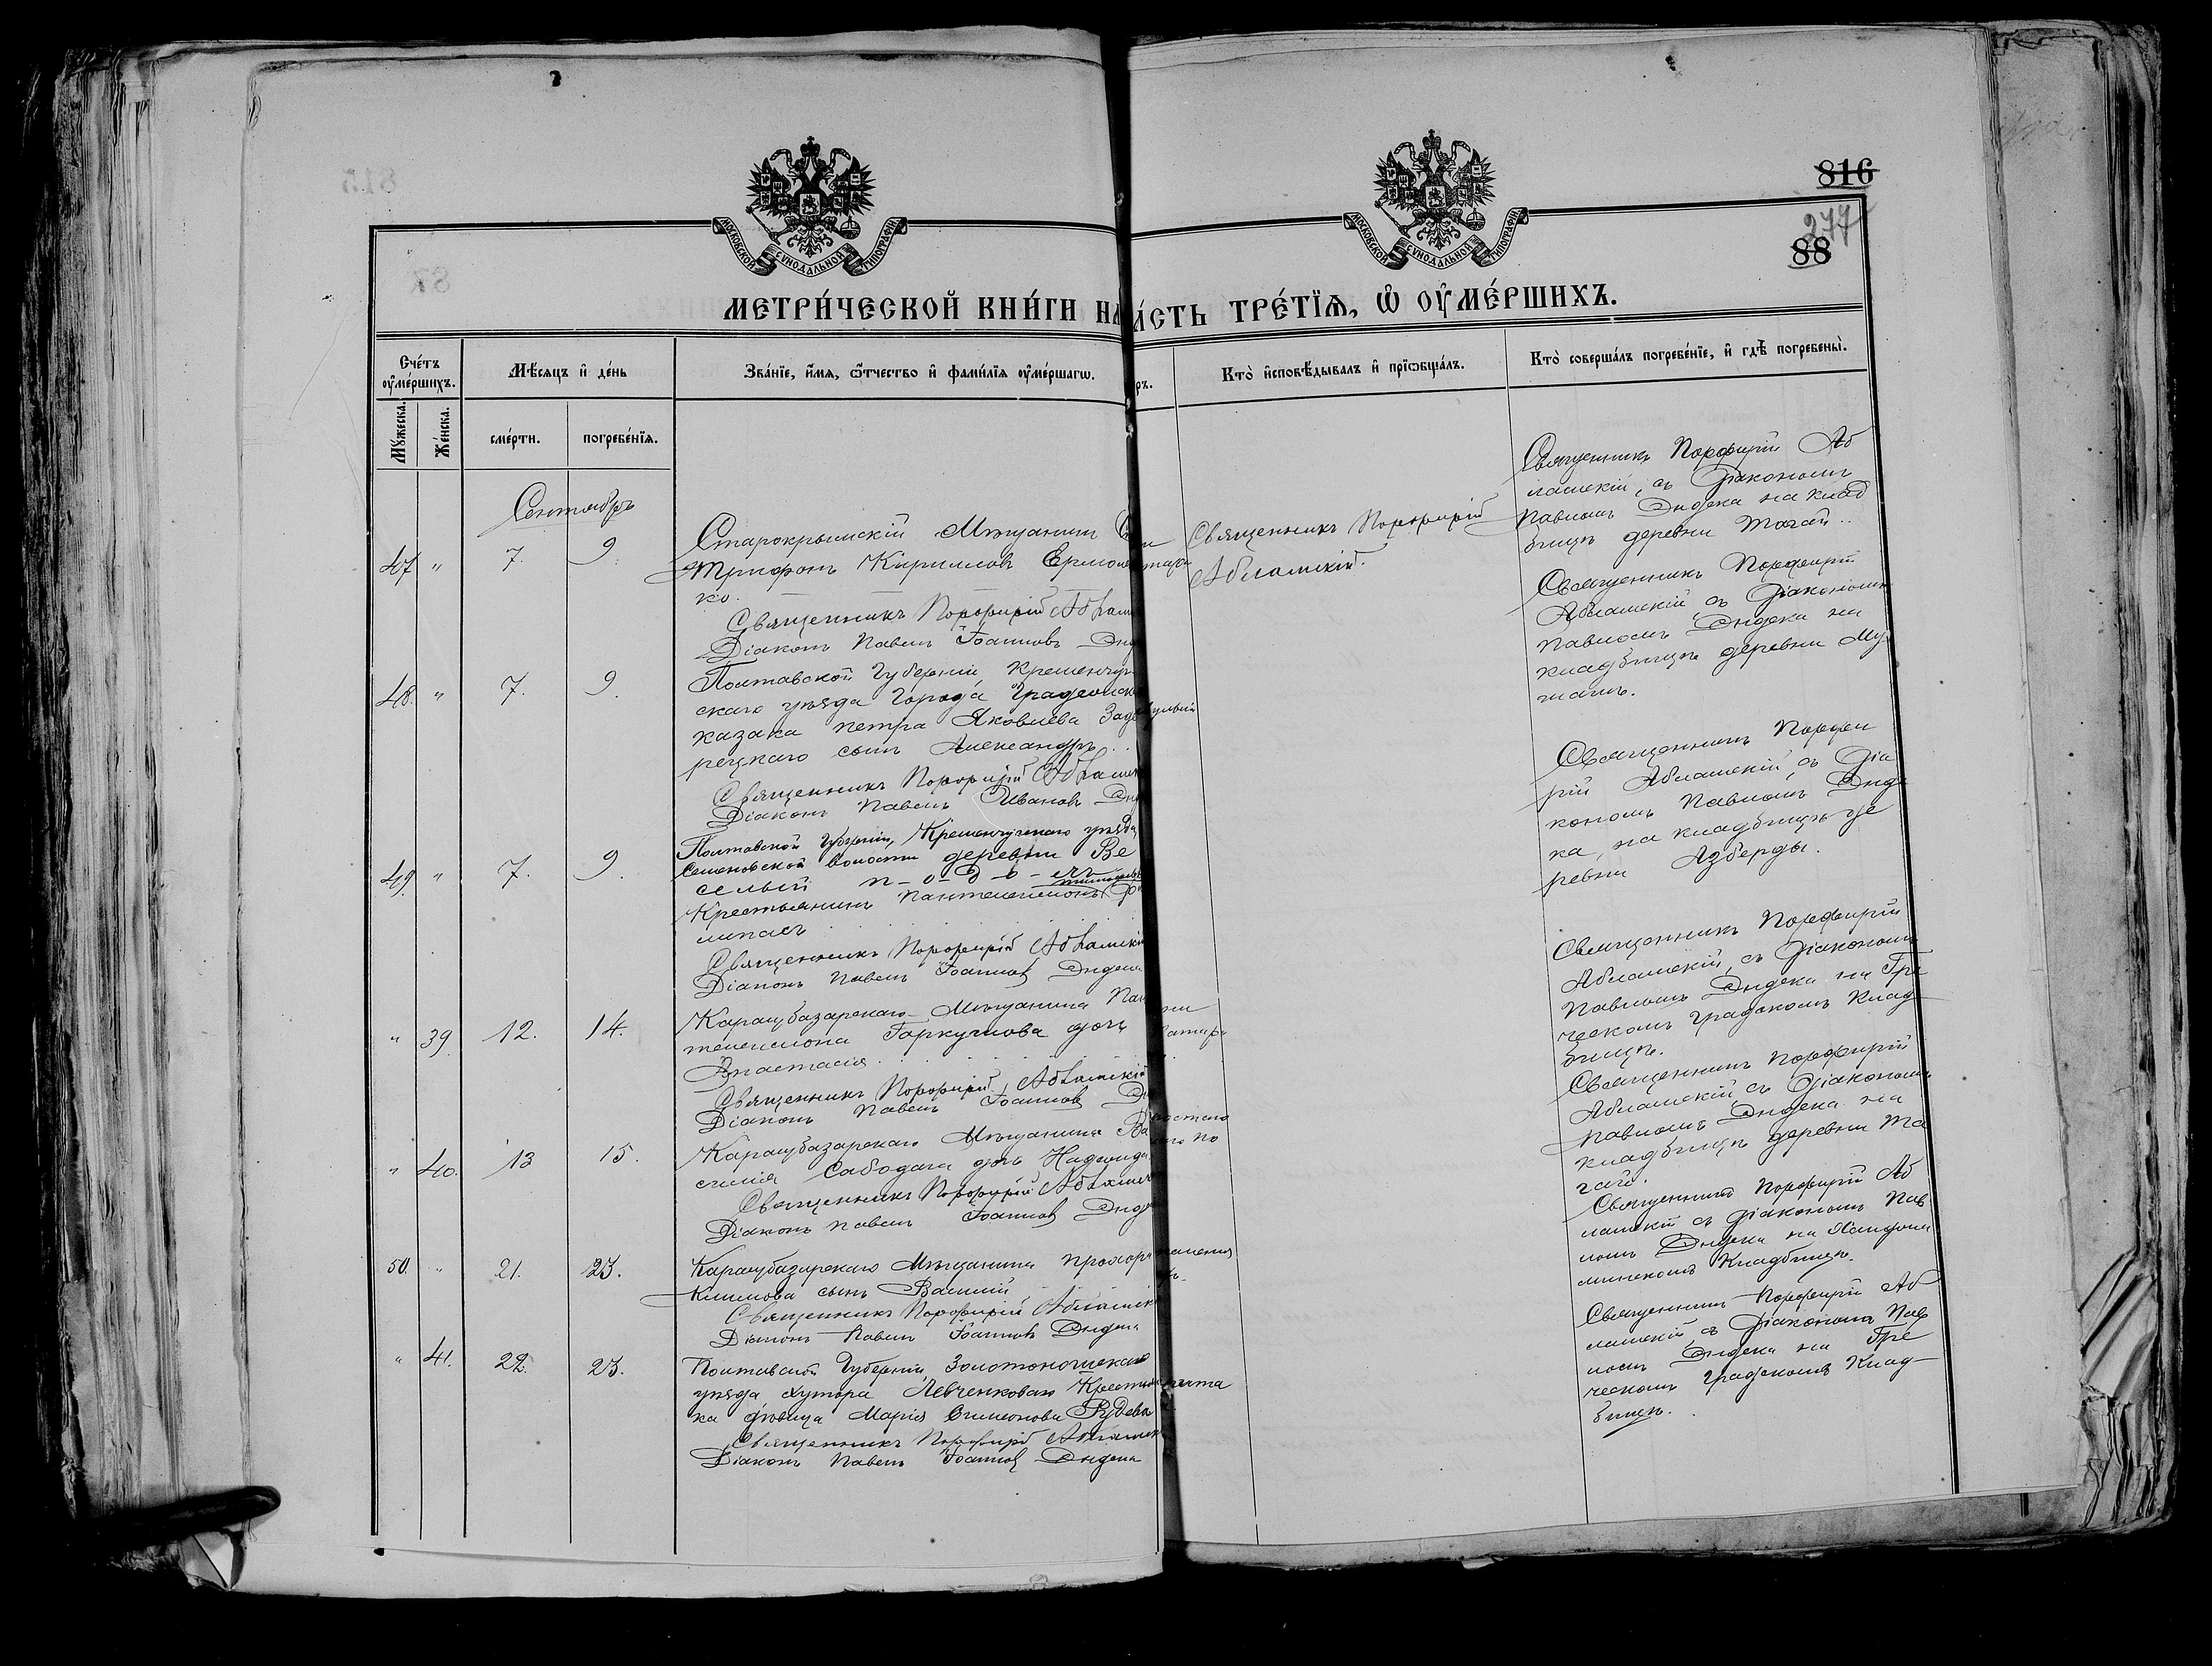 816
277
88
МОСКОВСКОЙ СѴНОДАЛЬНОЙ ТИПОГРАФІИ
МОСКОВСКОЙ СѴНОДАЛЬНОЙ ТИПОГРАФІИ
МЕТРИ́ЧЕСКОЙ КНИ́ГИ НА
А́СТЬ ТРЕ́ТІѦ, Ѿ ОУМЕ́РШИХЪ.
Сче́тъ оумершихъ.
Мѣсяцъ и де́нь
Зва́ніе, и́мя, ѻ҆́тчество и фами́лія оуме́ршагѡ.
ръ.
Кто̀ исповѣ́дывалъ и прїѡбща́лъ.
Кто̀ соверша́лъ погребе́ніе, и гдѣ̀ погребены̀.
Му́жеска.
Же́нска.
сме́рти.
погребе́нїя.
Сентябрь
47 " 7. 9.
Старокрымскій Мѣщанинъ
Трифонъ Кирилловъ Ермол
ко.
Священникъ Порфирій Аблам
Діаконъ Павелъ Іоанновъ Энд
Священникъ Порфирій
Абламскій.
Священникъ Порфирій Аб
ламскій, съ Діакономъ
Павломъ Эндека на клад
бищѣ деревни Тагай..
48. " 7. 9.
Полтавской Губерніи, Кременчуг
скаго уѣзда Города Градижск
казака Петра Яковлева Зад
рецкаго сынъ Александръ . .
Священникъ Порфирій Аблам
Діаконъ Павелъ Ивановъ Энд
Священникъ Порфирій
Абламскій съ Діакономъ
Павломъ Эндека на
кладбищѣ деревни Му
49. " 7. 9.
Полтавской Губерніи, Кременчугскаго уѣзда
Семеновской волости деревни Ве
селый
Крестьянинъ Пантелеимонъ
Священникъ Порфирій Абламскій
Діаконъ Павелъ Іоанновъ Эндека
Священникъ Порфи
рій Абламскій, съ Діа
кономъ Павломъ Энде
ка, на кладбищѣ де
ревни Азберды.
" 39 12. 14.
Карасубазарскаго Мѣщанина Пан
телеимона Гаркушова дочь
Анастасія
Священникъ Порфирій Абламскій
Діаконъ Павелъ Іоанновъ Эн
Священникъ Порфирій
Абламскій, съ Діакономъ
Павломъ Эндека на Гре
ческомъ градскомъ клад
бищѣ.
" 40. 13 15.
Карасубазарскаго Мѣщанина Ва
силія Слободяна дочь Надежда
Священникъ Порфирій Абламск
Діаконъ Павелъ Іоанновъ Энде
Священникъ Порфирій
Абламскій, съ Діакономъ
Павломъ Эндека на
кладбищѣ деревни Та
гай.
50. " 21. 23.
Карасубазарскаго Мѣщанина Прохора
Климова сынъ Василій
Священникъ Порфирій Абламск
Діаконъ Павелъ Іоанновъ Эндека
Священникъ Порфирій Аб
ламскій съ діакономъ Пав
ломъ Эндека на
кладбищѣ.
" 41. 22. 23.
Полтавской Губерніи Золотоношскаго
уѣзда хутора Левченковаго Крестьян
ка дѣвица Марія Симеонова
Священникъ Порфирій Абламск
Діаконъ Павелъ Іоанновъ Эндека
Священникъ Порфирій Аб
ламскій, съ Діакономъ Пав
ломъ Эндека на Гре
ческомъ градскомъ Клад-
бищѣ.